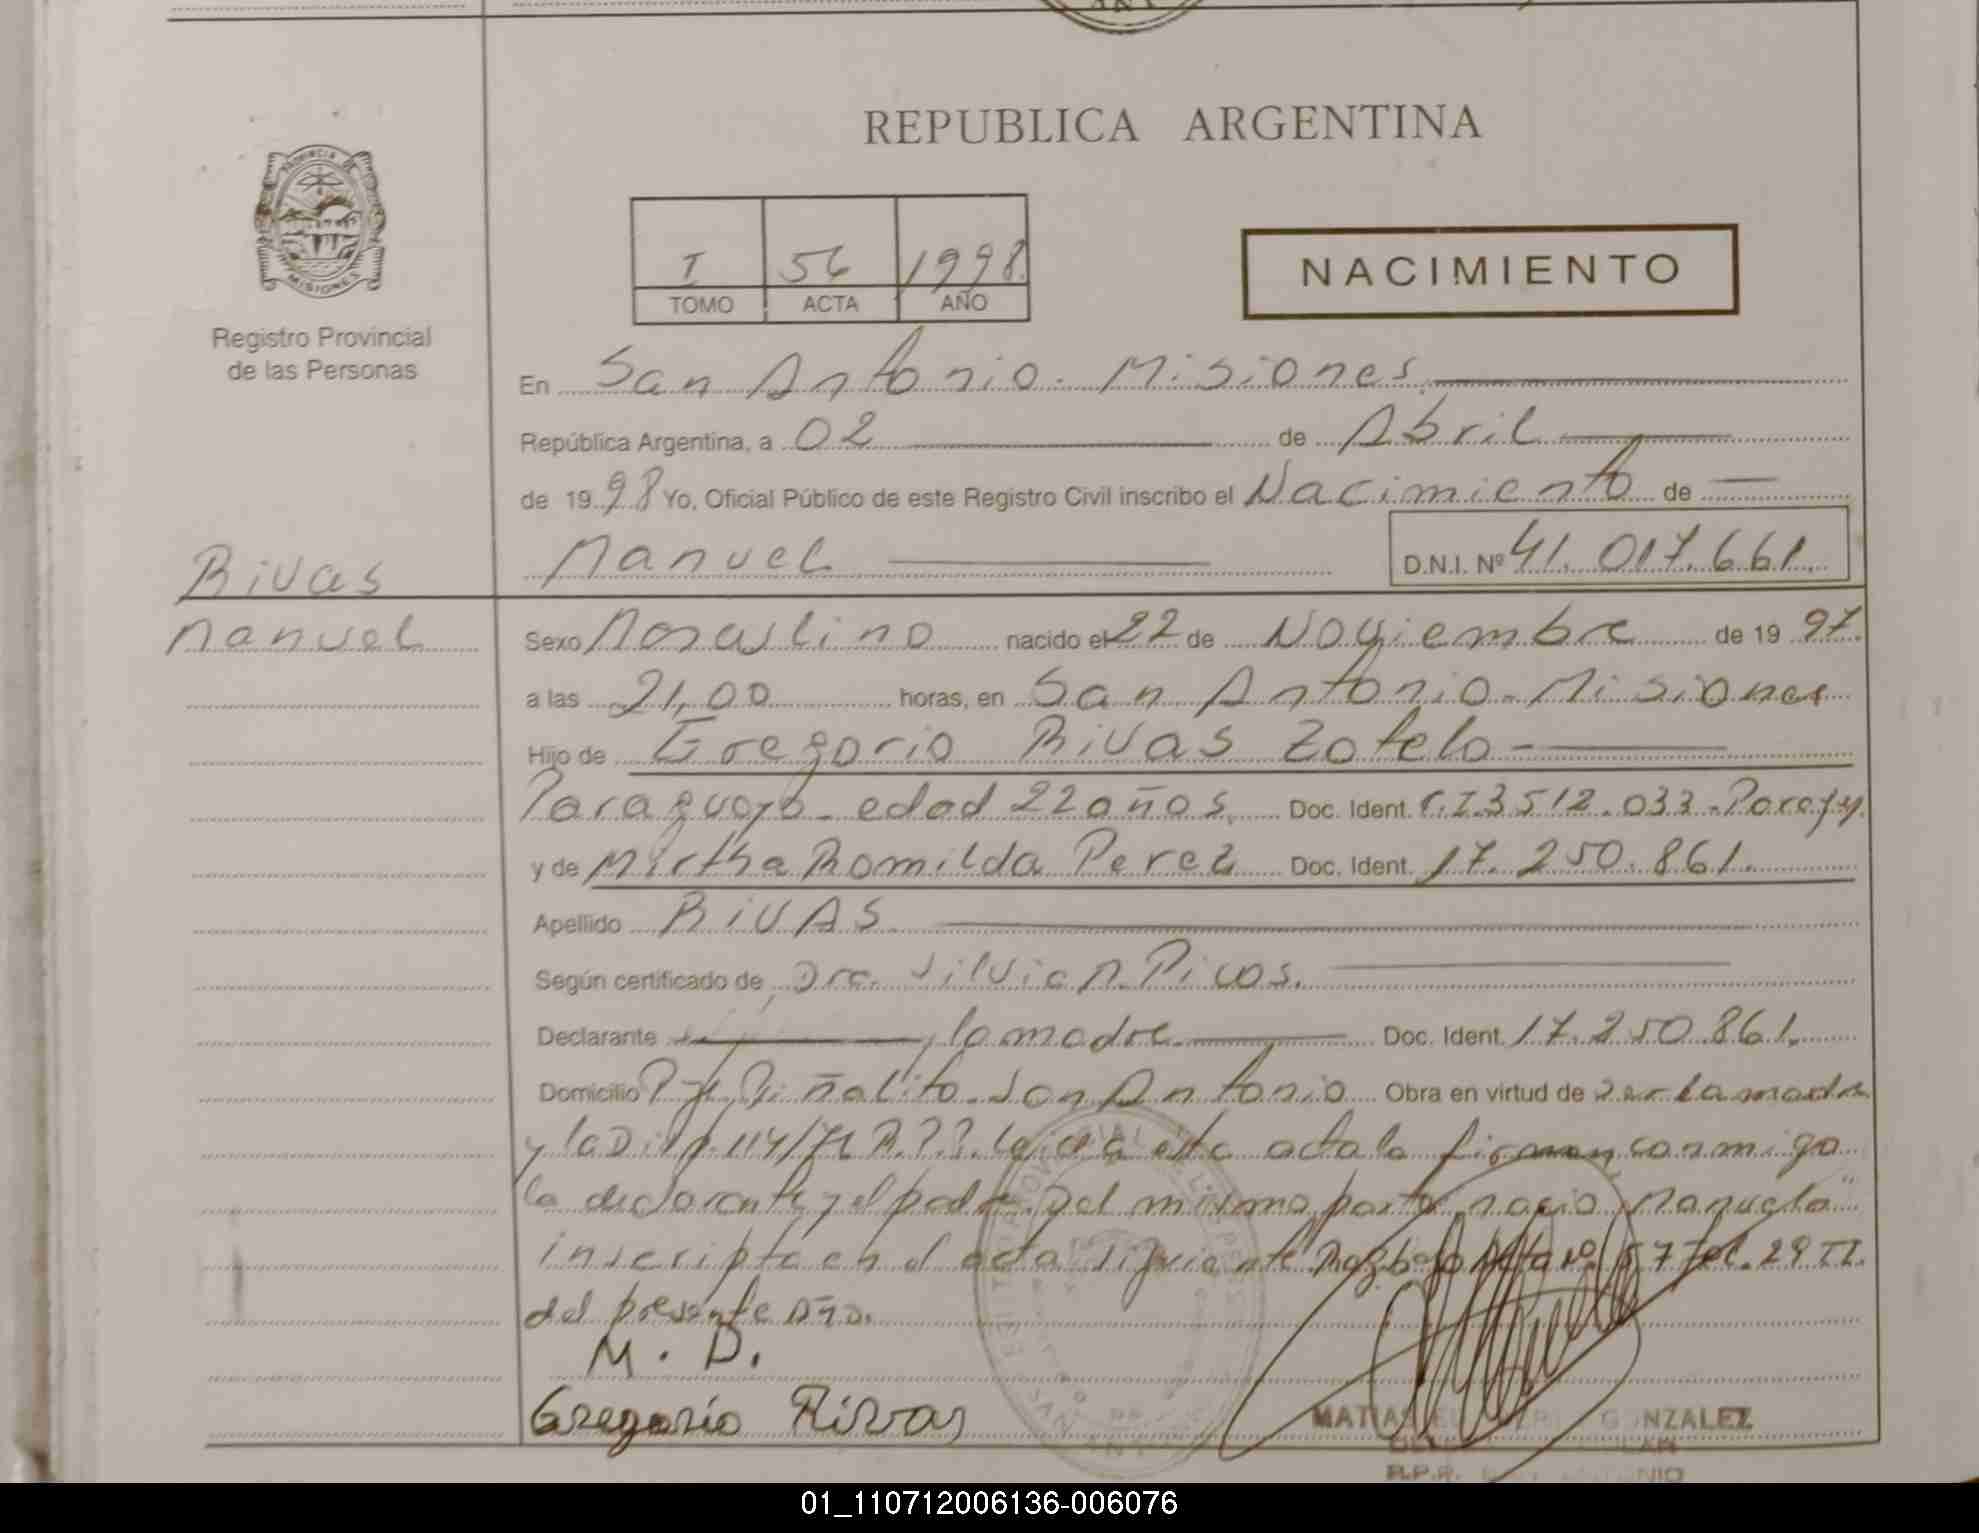 REPUBLICA ARGENTINA
PROVINCIA DE
MISIONES
Registro Provincial
de las Personas
I 56 1998.
TOMO ACTA AÑO
NACIMIENTO
En San Antonio. Misiones.
República Argentina, a 02 de Abril
de 1998 Yo, Oficial Público de este Registro Civil inscribo el Nacimiento de
Manuel D.N.I. Nº 41.017.661.
Rivas
Manuel
Sexo Masculino nacido el 22 de Noviembre de 1997.
a las 21,00 horas, en San Antonio. Misiones
Hijo de Gregorio Rivas Zotelo -
Paraguayo. edad 22 años. Doc. Ident. C.I.3512.033.
y de Mirtha Romilda Perez Doc. Ident. 17.250.861.
Apellido RIVAS
Según certificado de Dra. Silvia Picos.
Declarante la madre Doc. Ident. 17.250.861.
Domicilio Piñalito. San Antonio Obra en virtud de ser la madre
y la 114/ esta acta la firman conmigo
la declarante y el padre. Del mismo parto nacio "Manuela"
inscripta en el acta siguiente bajo Acta nº 57 Fol. 29 TI.
del presente Año.
M. D.
Gregorio Rivas
MATIAS GONZALEZ
R.P.P. SAN ANTONIO
01_110712006136-006076